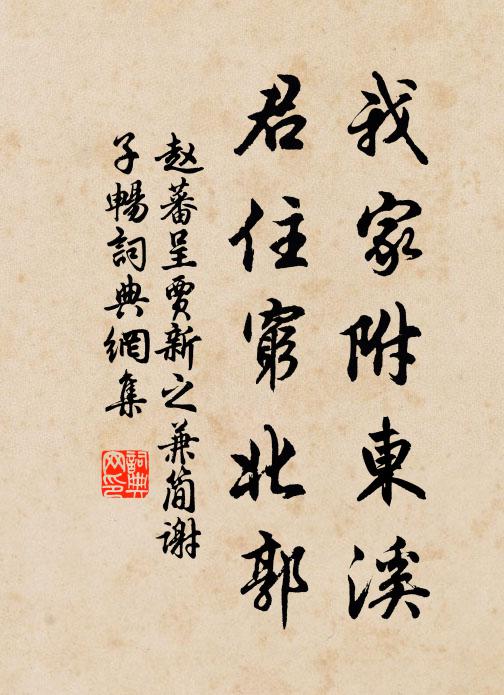 我家附東溪
君住窮北郭
赵蕃呈賈新之兼简谢
子暢詞典網集
詞典
网印